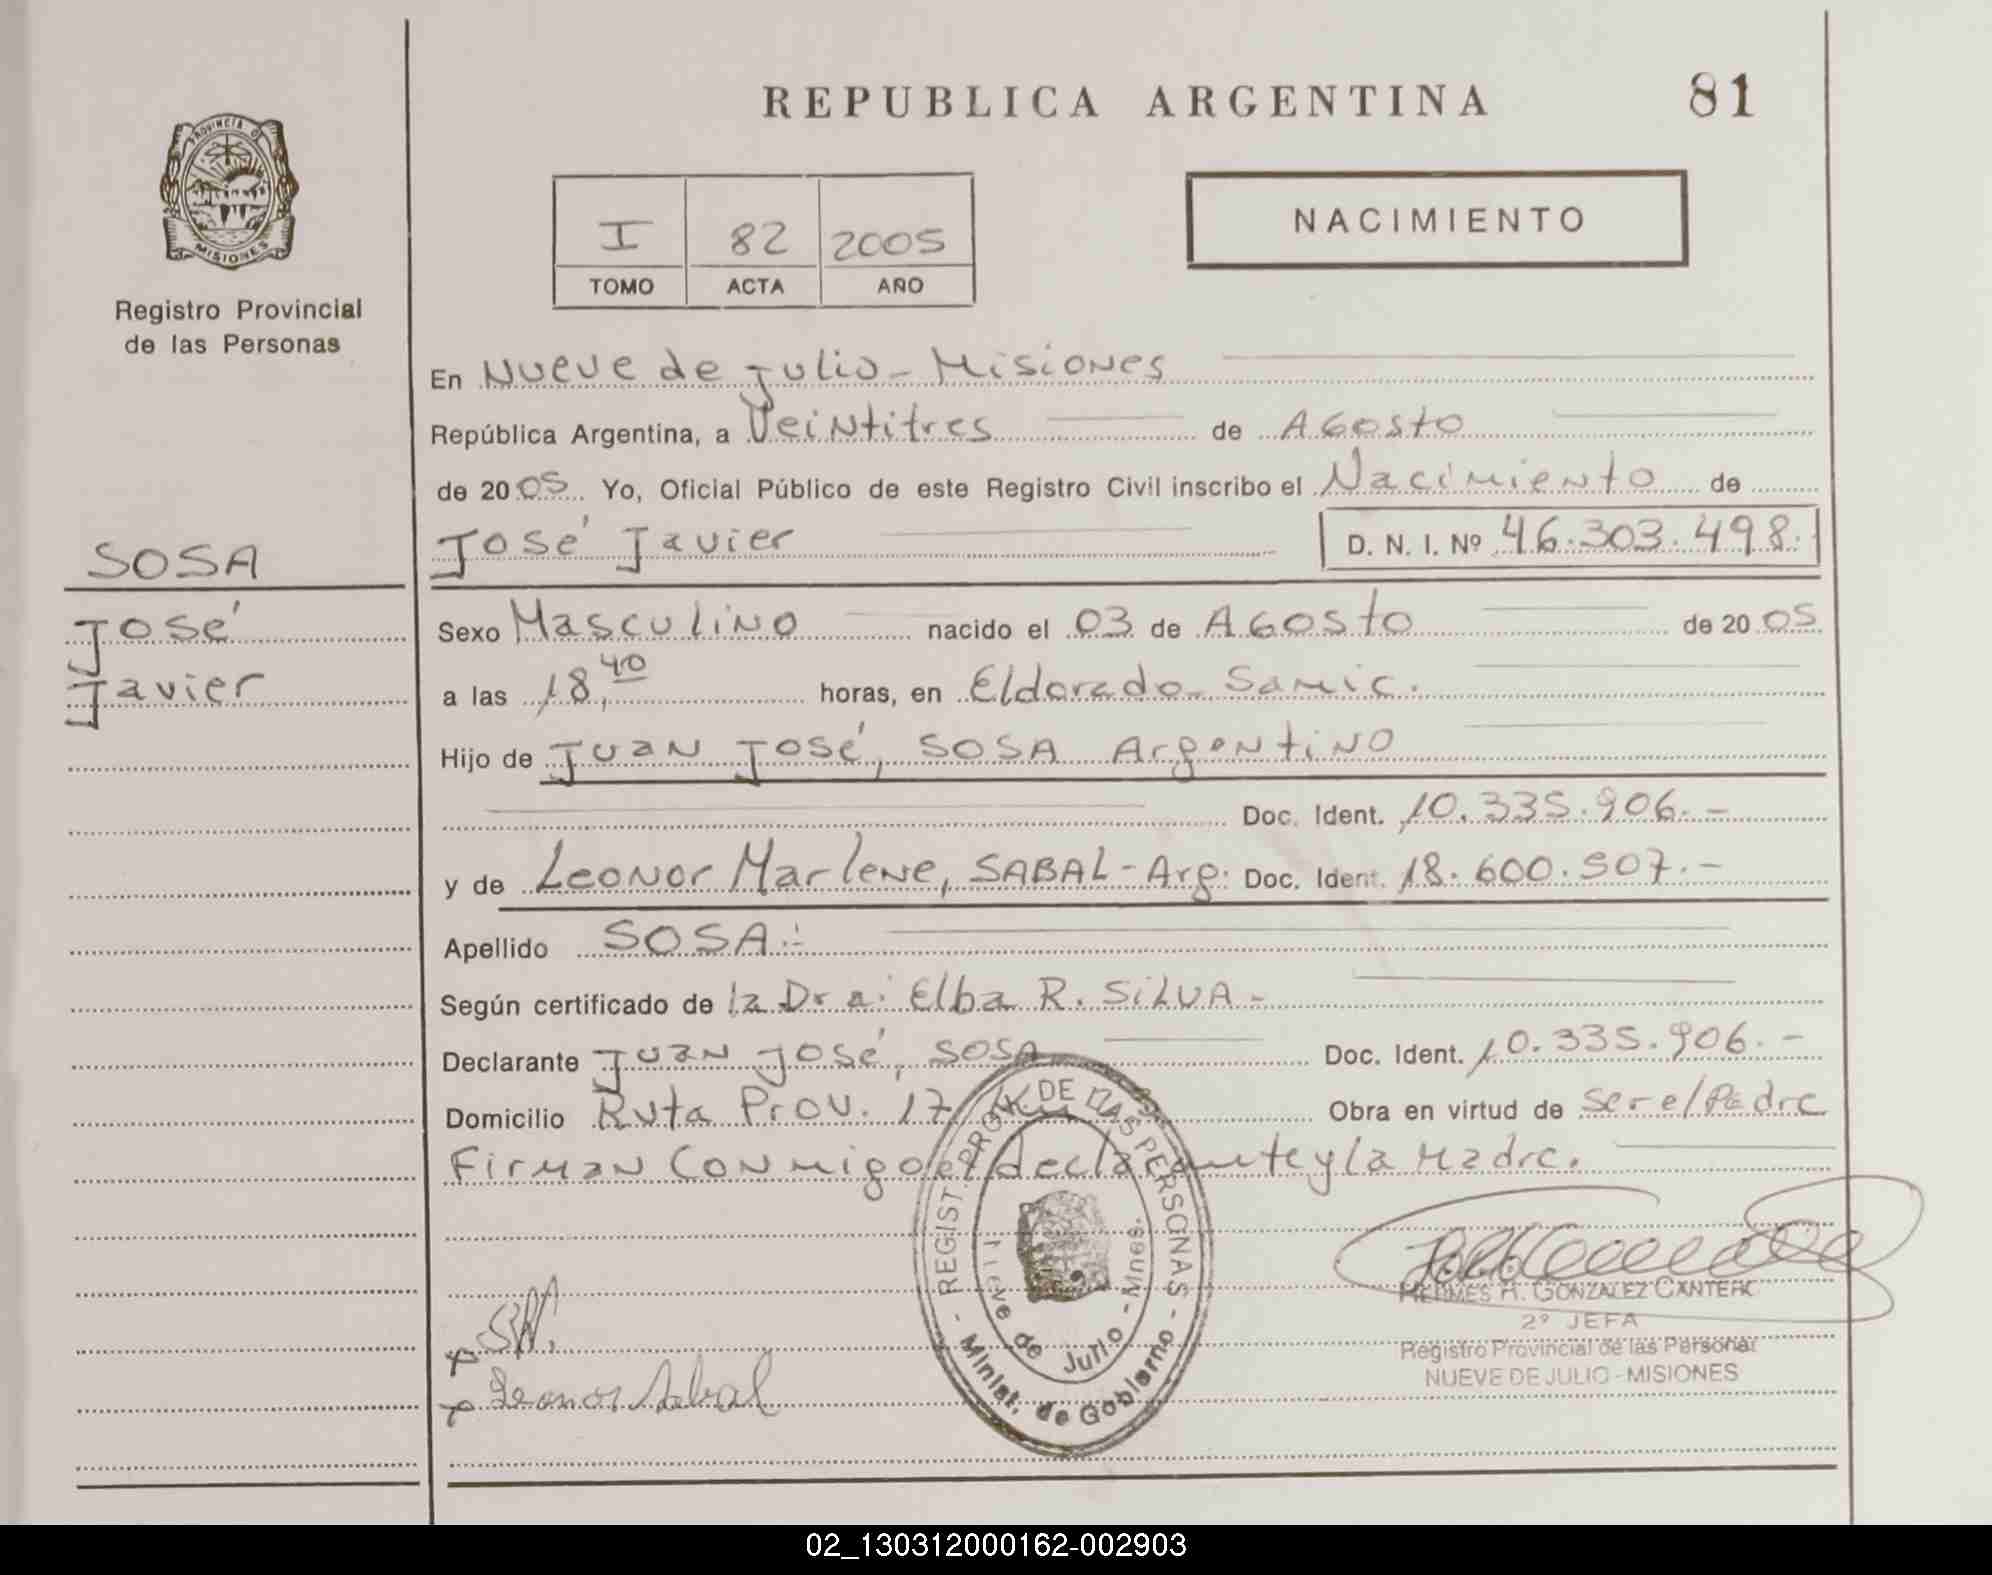 REPUBLICA ARGENTINA
81
PROVINCIA DE MISIONES
Registro Provincial
de las Personas
I 82 2005
TOMO ACTA AÑO
NACIMIENTO
En Nueve de Julio - Misiones
República Argentina, a Veintitres de Agosto
de 2005. Yo, Oficial Público de este Registro Civil inscribo el Nacimiento de
José Javier D. N. I. Nº 46.303.498.
SOSA
José
Javier
Sexo Masculino nacido el 03 de Agosto de 2005
a las 18,40 horas, en Eldorado - Samic.
Hijo de Juan José, SOSA Argentino
Doc. Ident. 10.335.906.-
y de Leonor Marlene, SABAL - Arg. Doc. Ident. 18.600.507.-
Apellido SOSA.-
Según certificado de la Dra: Elba R. SILVA -
Declarante Juan José, SOSA Doc. Ident. 10.335.906.-
Domicilio Ruta Prov. 17 Obra en virtud de ser el Padre
Firman conmigo el declarante y la Madre.
REGIST. PROV. DE LAS PERSONAS
Nueve de Julio - Mnes.
- Minist. de Gobierno -
Leonor Sabal
HERMES R. GONZALEZ CANTERO
2º JEFA
Registro Provincial de las Personas
NUEVE DE JULIO - MISIONES
02_130312000162-002903